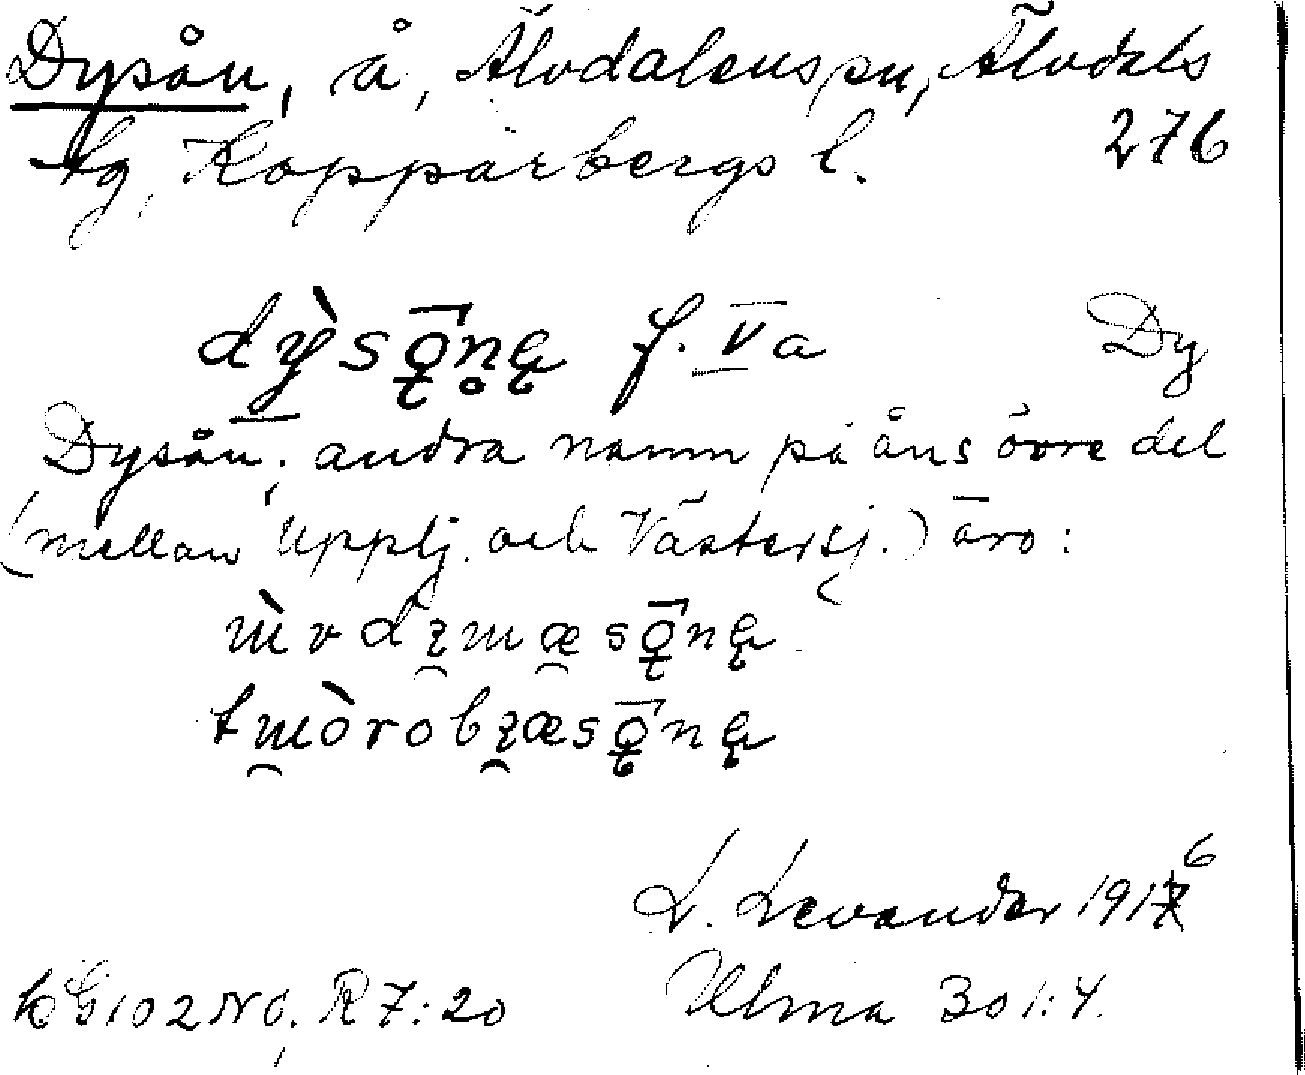 Dysån, å, Älvdalens sn, Älvdals
tg, Kopparbergs l. 276
dỳsǭn̥ę f. V a Dy
Dysån; andra namn på åns övre del
(mellan Upplj. och Västersj.) äro:
L. Levander 1916
KG 102 NO, R 7:20 Ulma 301:4.